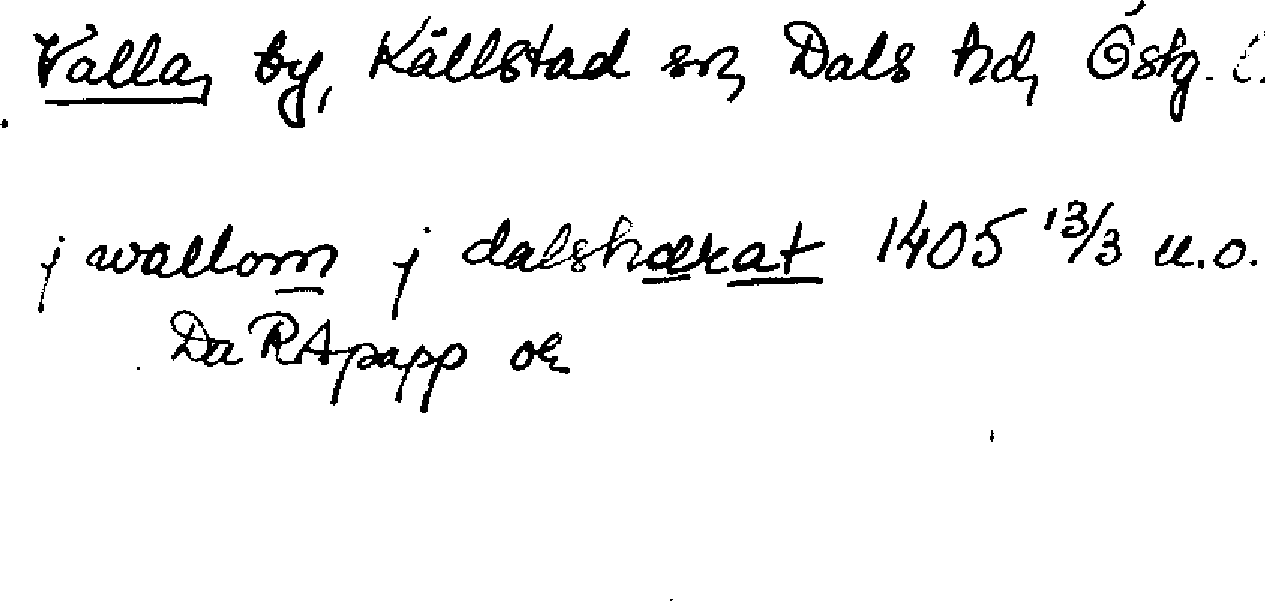 Valla, by, Källstad sn, Dals hd, Östg. l.
j wallom j dalshærat 1405 13/3 u.o.
Da RApapp or